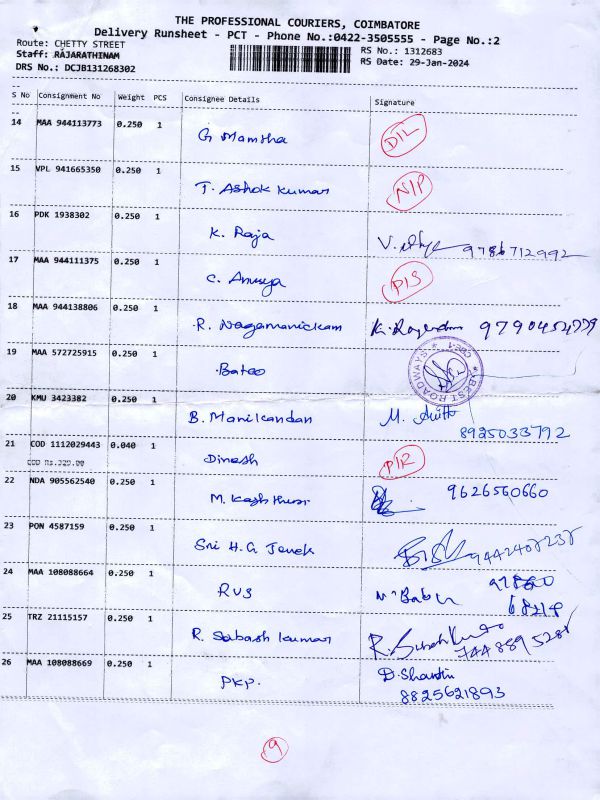 THE PROFESSIONAL COURIERS, COIMBATORE
Delivery Runsheet - PCT - Phone No.:0422-3505555 - Page No.:2
Route: CHETTY STREET RS No.: 1312683
Staff: RAJARATHINAM RS Date: 29-Jan-2024
DRS No.: DCJB131268302
S No Consignment No Weight PCS Consignee Details Signature
14 MAA 944113773 0.250 1 G Mamsha DIL
15 VPL 941665350 0.250 1 T. Ashok Kumar NIP
16 PDK 1938302 0.250 1 K. Raja 9786712992
17 MAA 944111375 0.250 1 C. Anusya PIS
18 MAA 944138806 0.250 1 R. Nagamanickam
19 MAA 572725915 0.250 1 BEST ROADWAYS
20 KMU 3423382 0.250 1 B. Manikandan M.
8925033792
21 COD 1112029443 0.040 1 Dinesh PIR
22 NDA 905562540 0.250 1 M. 9626560660
23 PON 4587159 0.250 1 Sri H.G
24 MAA 108088664 0.250 1 RVS
25 TRZ 21115157 0.250 1 R. Sabash Kumar
26 MAA 108088669 0.250 1 PKP.
8825621893
9